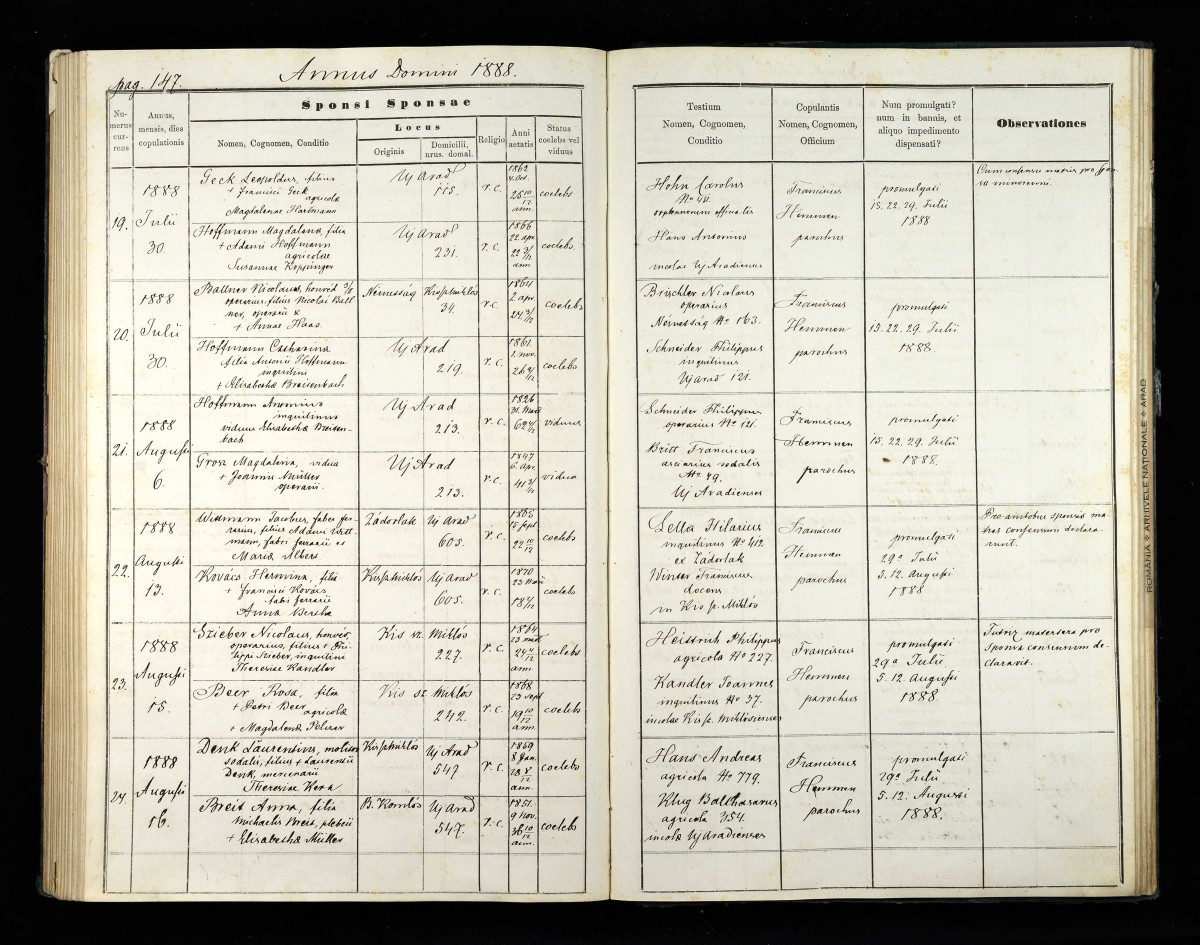 pag. 147.
Annus Domini 1888.
Numerus currens
Annus, mensis, dies copulationis
Sponsi Sponsae
Nomen, Cognomen, Conditio
Locus
Originis
Domicilii, nrus. domal.
Religio
Anni aetatis
Status coelebs vel viduus
Testium
Nomen, Cognomen,
Conditio
Copulantis
Nomen, Cognomen,
Officium
Num promulgati?
num in bannis, et
aliquo impedimento
dispensati?
Observationes
19.
1888
Julii
30.
Geck Leopoldus, filius
+ Francisci Geck
agricolæ
Magdalenae Hartmann
Uj Arad
115.
r. c.
1862
4. Oct.
25 10/12
ann.
coelebs
Hoffmann Magdalena, filia
+ Adami Hoffmann
agricolae
Susannae Koppinger
Uj Arad
231.
r. c.
1866
22 apr.
22 3/12
ann.
coelebs
Hohn Carolus
No 40.
orphanorum officialis
Hans Antonius
incolae Uj Aradienses
Franciscus
Hemmen
parochus
promulgati
15. 22. 29. Julii
1888
Cum consensu matris pro sponsa minorenni.
20.
1888
Julii
30.
Ballner Nicolaus, honvéd
operarius, filius Nicolai Ballner, operarii &
+ Annae Haas
Németság
Kisszentmiklós
34.
r. c.
1864
2 apr.
24 3/12
coelebs
Hoffmann Catharina
filia Antonii Hoffmann
inquilini
+ Elisabethæ Breisenbach
Uj Arad
219.
r. c.
1861.
2. nov.
26 8/12
coelebs
Brischler Nicolaus
operarius
Németság No 163.
Schneider Philippus
inquilinus
Uj Arad 121.
Franciscus
Hemmen
parochus
promulgati
15. 22. 29. Julii
1888.
21.
1888
Augusti
6.
Hoffmann Antonius
inquilinus
viduus Elisabethæ Breisenbach
Uj Arad
213.
r. c.
1826
31. Mart
62 4/12
viduus
Grosz Magdalena, vidua
+ Joannis Müller
operarii.
Uj Arad
213.
r. c.
1847
6. Apr.
41 3/12
vidua
Schneider Philippus
operarius No 121.
Britt Franciscus
asciarius sodalis
No 49.
Uj Aradienses
Franciscus
Hemmen
parochus
promulgati
15. 22. 29. Julii
1888.
22.
1888
Augusti
13.
Wittmann Jacobus, faber ferrarius, filius Adami Wittmann, fabri ferrarii et
Mariæ Albers
Zádorlak
Uj Arad
605.
r. c.
15 sept
22 10/12
coelebs
Kovács Hermina, filia
+ Francisci Kovács
fabri ferrarii
Annæ Bertha
Kisszentmiklós
Uj Arad
605.
r. c.
1870
23
coelebs
Hilarius
inquilinus No 412
ex Zádorlak
Winter Franciscus
docens
in Kis sz. Miklós
Franciscus
Hemmen
parochus
promulgati
29a Julii
5. 12. Augusti
1888
Pro ambobus sponsis matres consensum declararunt.
23.
1888
Augusti
15.
Szieber Nicolaus, honvéd,
operarius, filius + Philippi Szieber, inquilini
Theresiae Kandler
Kis sz. Miklós
227.
r. c.
1864
23 mart
24 4/12
ann.
coelebs
Beer Rosa, filia
+ Petri Beer
agricolæ
+ Magdalenæ Pelczer
Kis sz. Miklós
242.
r. c.
1868
23 sept
19 10/12
ann.
coelebs
Heittrich Philippus
agricola No 227.
Kandler Joannes
inquilinus No 37.
incolae Kis sz. Miklósienses
Franciscus
Hemmen
parochus
promulgati
29a Julii
5. 12. Augusti
1888
Tutrix matertera pro
Sponsa consensum declaravit.
24.
1888
Augusti
16.
Denk Laurentius, molitor
sodalis, filius + Laurentii
Denk, mercenarii
Theresiae Kern
Kisszentmiklós
Uj Arad
547
r. c.
1859
8 Jan.
ann.
coelebs
Breit Anna, filia
Michaelis Breit, plebeii
+ Elisabethæ Müller
B. Komlós
Uj Arad
547.
r. c.
1851.
9 Nov.
36 10/12
ann.
coelebs
Hans Andreas
agricola No 779.
Klug Balthasarus
agricola 354.
incolæ Uj Aradienses
Franciscus
Hemmen
parochus
promulgati
29a Julii
5. 12. Augusti
1888.
ROMÂNIA ARHIVELE NAȚIONALE ARAD